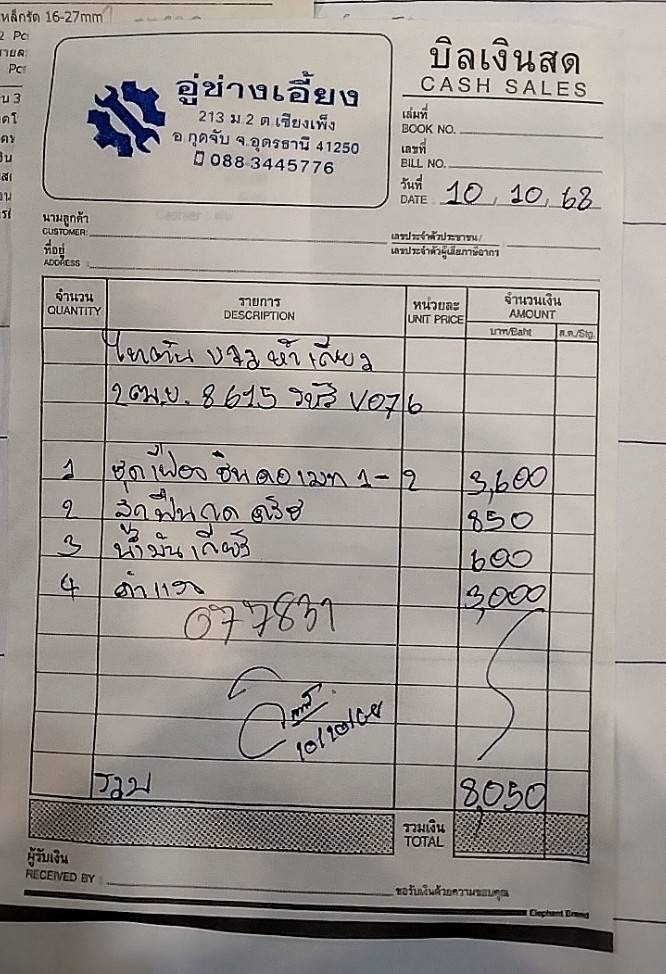 เหล็กรัด 16-27mm
2 Pc
Pc
บิลเงินสด
CASH SALES
อู่ช่างเอี้ยง
213 ม.2 ต.เชียงเพ็ง
อ.กุดจับ จ.อุดรธานี 41250
088 3445776
เล่มที่
BOOK NO.
เลขที่
BILL NO.
วันที่
DATE 10, 10, 68
นามลูกค้า
CUSTOMER:
เลขประจำตัวประชาชน/
เลขประจำตัวผู้เสียภาษีอากร
ที่อยู่
ADDRESS :
จำนวน QUANTITY รายการ DESCRIPTION หน่วยละ UNIT PRICE จำนวนเงิน AMOUNT
บาท/Baht ส.ต./Stg.
8615 รหัส V076
1 ชุดเฟือง 1-2 3,600
2 850
3 น้ำมันเกียร์ 600
4 ค่าแรง 3,000
077831
10/10/68
รวม 8,050
รวมเงิน
TOTAL
ผู้รับเงิน
RECEIVED BY :
ขอรับเงินด้วยความขอบคุณ
Elephant Brand